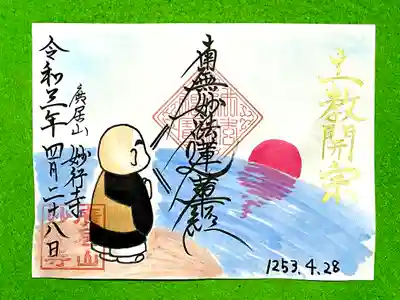 立教開宗
南無妙法蓮華経
妙行寺
令和三年四月二十八日
1253.4.28